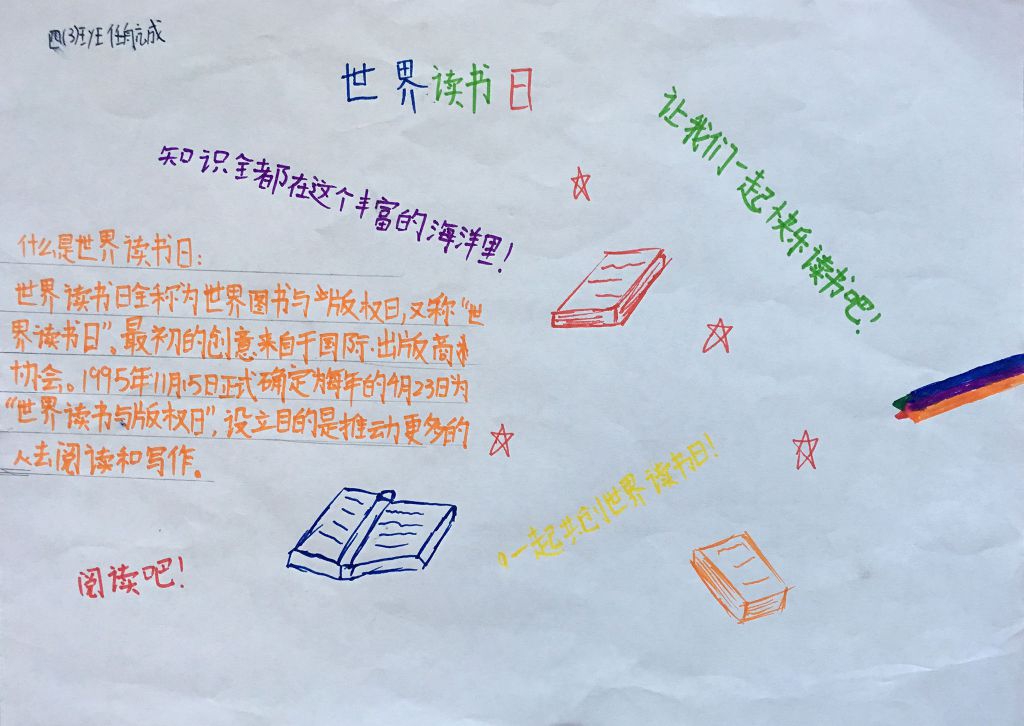 四(3)班 任航成
世界读书日
让我们一起快乐读书吧！
知识全都在这个丰富的海洋里！
什么是世界读书日：
世界读书日全称为世界图书与版权日,又称“世
界读书日”、最初的创意来自于国际出版商
协会。1995年11月15日正式确定每年的4月23日为
“世界读书与版权日”，设立目的是推动更多的
人去阅读和写作。
一起共创世界读书日！
阅读吧！